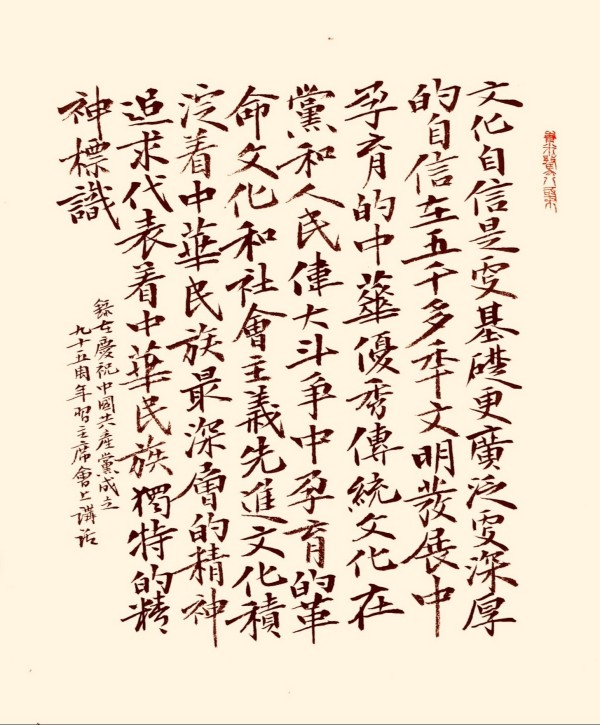 文化自信是更基礎更廣泛更深厚
的自信在五千多年文明發展中
孕育的中華優秀傳統文化在
黨和人民偉大斗爭中孕育的革
命文化和社會主義先進文化積
淀着中華民族最深層的精神
追求代表着中華民族獨特的精
神標識
錄在慶祝中國共產黨成立
九十五周年習主席會上講話